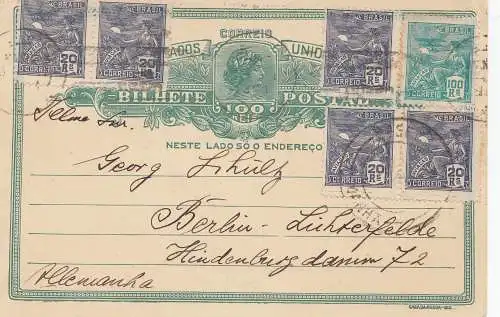 BRASIL BRASIL CORREIO BRASIL BRASIL
UNIDOS
20 Rs 20 Rs 20 Rs 100 Rs
CORREIO CORREIO CORREIO CORREIO
BILHETE 100 POSTAL
RÉIS
BRASIL BRASIL
NESTE LADO SÓ O ENDEREÇO
20 Rs 20 Rs
CORREIO CORREIO
Georg Schultz
Berlin-Lichterfelde
Hindenburgdamm 72
Allemanha